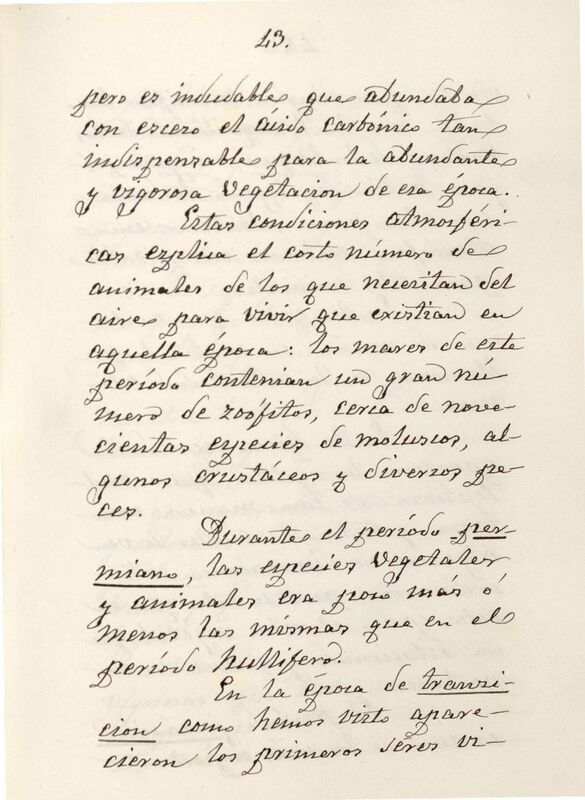 43.
pero es indudable que abundaba
con esceso el ácido carbónico tan
indispensable para la abundante
y vigorosa vegetacion de esa época.
Estas condiciones atmosféri-
cas esplica el corto número de
animales de los que necesitan del
aire para vivir que existian en
aquella época: los mares de este
período contenian un gran nú-
mero de zoófitos, cerca de nove-
cientas especies de moluscos, al-
gunos crustáceos y diversos pe-
ces.
Durante el período per-
miano, las especies vegetales
y animales era poco más ó
menos las mismas que en el
período hullifero.
En la época de transi-
cion como hemos visto apare-
cieron los primeros séres vi-